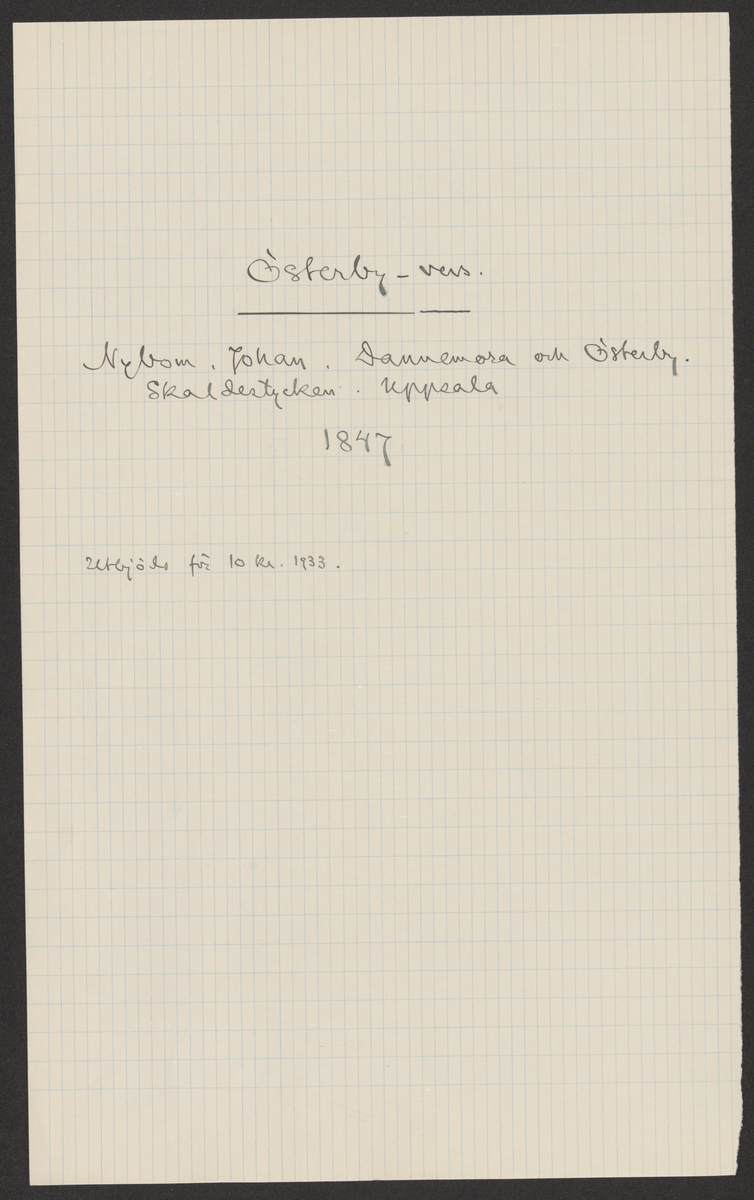 Österby - vers.
Nybom, Johan. Dannemora och Österby.
Skaldestycken. Uppsala
1847
Utbjöds för 10 kr. 1933.